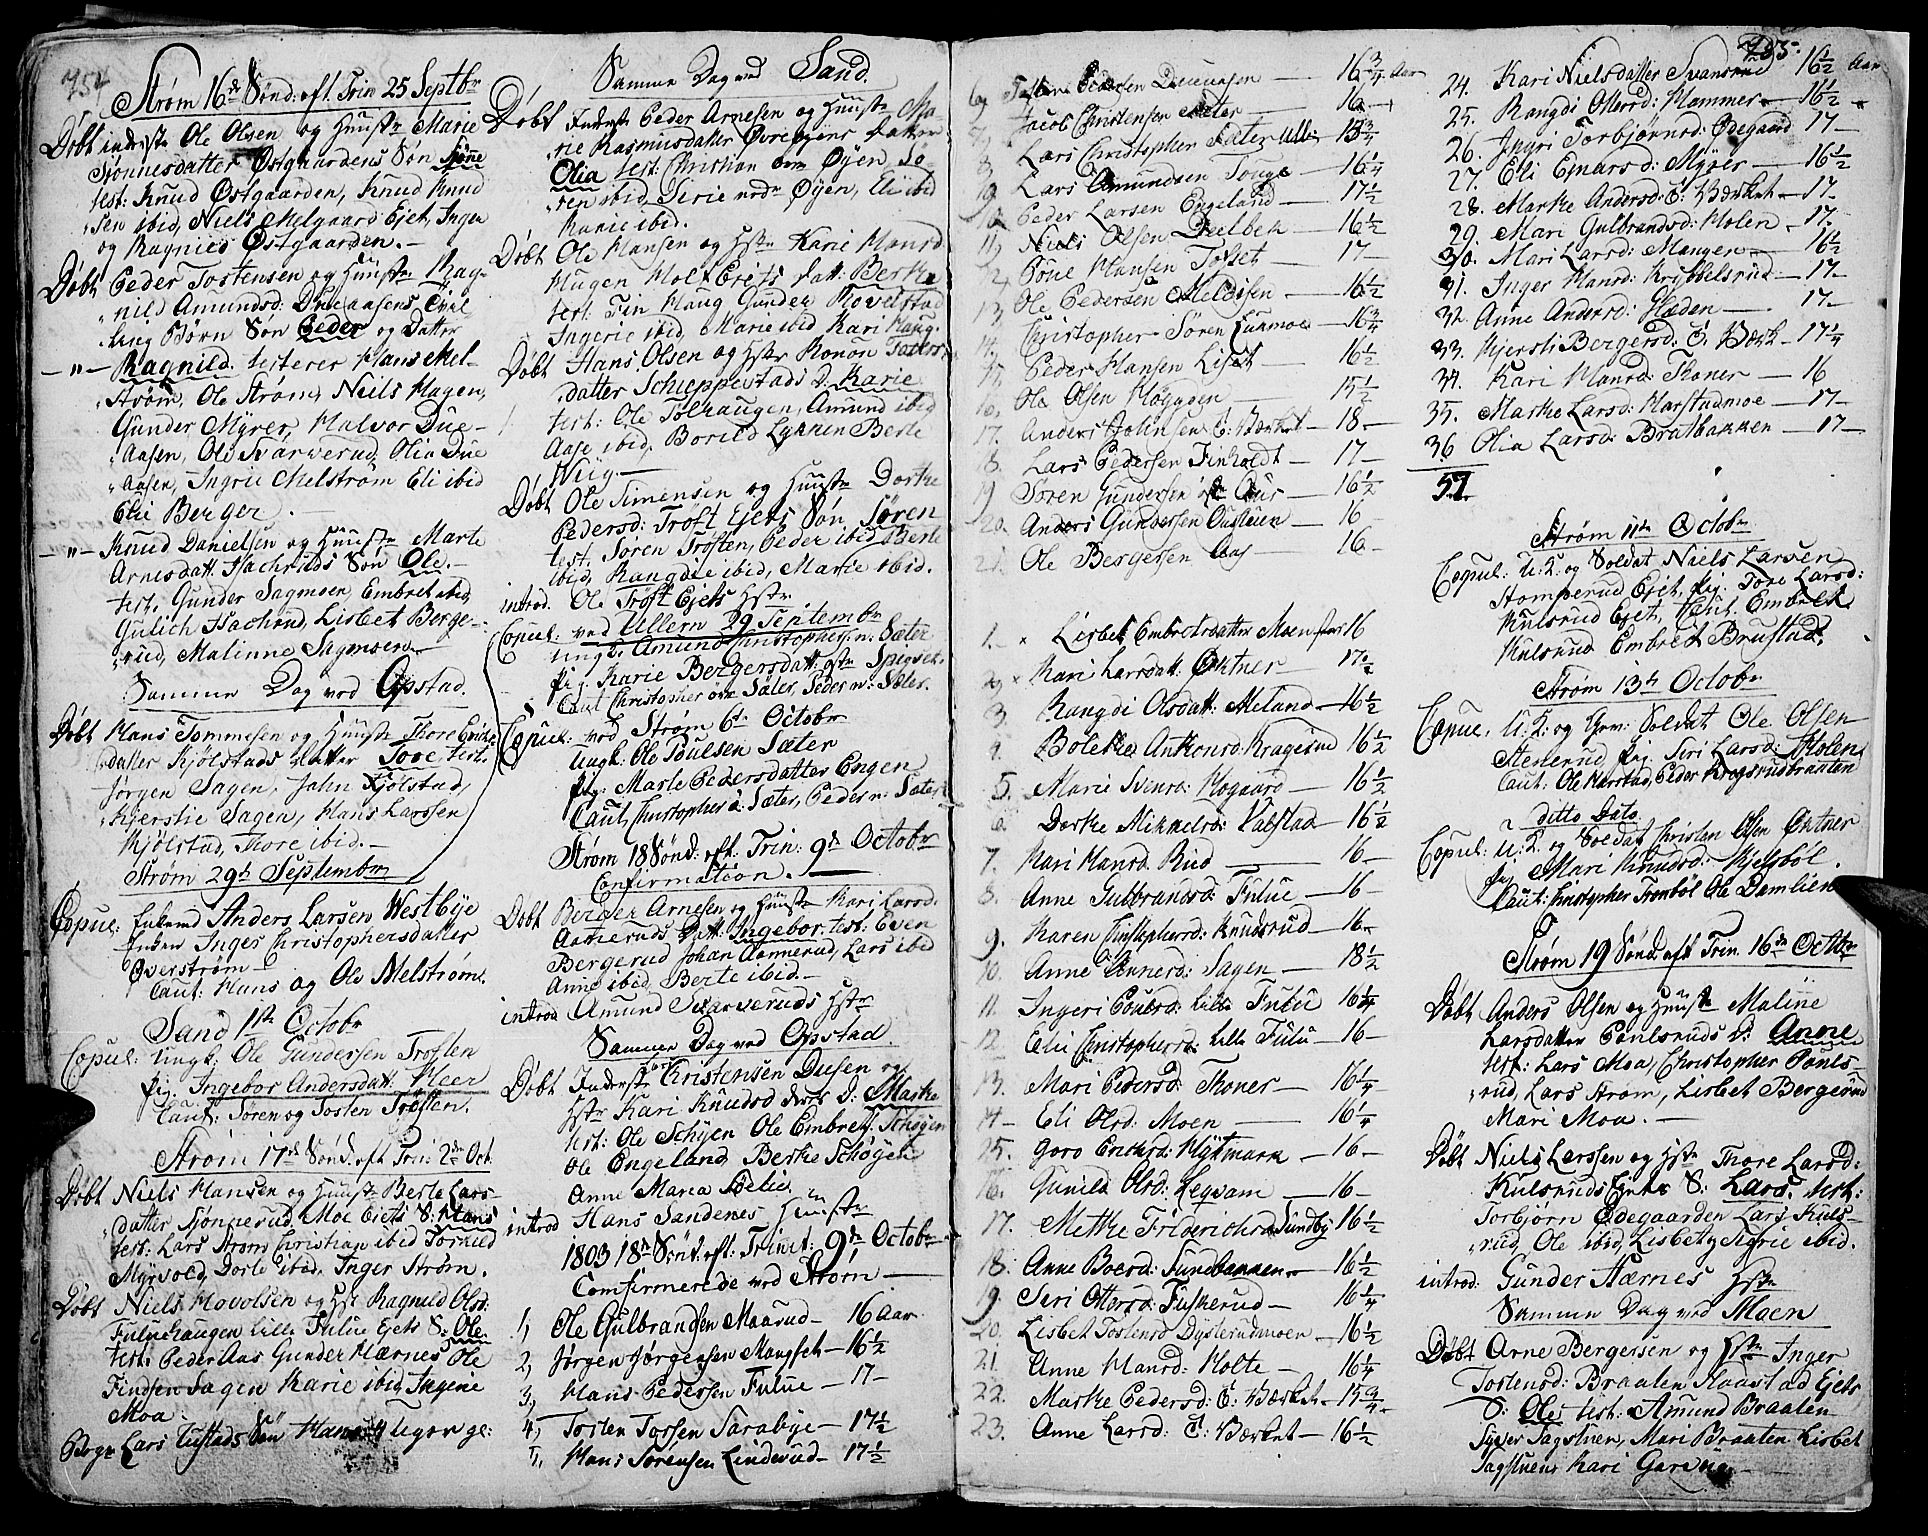 752
Strøm 16de Sönd: eft. Trin 25 Septbr
Döbt inderste Ole Olsen og Huust: Marie
Sjønnesdatter Østgaardens Søn Sjønne
test: Knud Østgaarden, Knud Knud
sen ibid, Niels Melgaard Ejet, Inger
og Ragnild Østgaarden.
Döbt Peder Tostensen og Huust: Rag-
nild Amundsd: Dueaasens Tvil
ling Børn Søn Peder og Datter
Ragnild. testerer Hans Mel
Strøm, Ole Strøm, Niels Hagen,
Gunder Myrer, Halvor Due-
Aasen, Ole Svarverud, Olia Due
Aasen, Ingrie Melstrøm Eli ibid
Elie Berger.
Knud Danielsen og Huust: Marte
Arnesdatt: Søn Ole.
test. Gunder Sagmoen, Embret ibid,
Gulich Lisbet Berge-
rud, Malinne Sagmoen
Samme Dag ved Opstad.
Döbt Hans Tommesen og Huust: Thore Erichs
datter Kjölstads datter Tove, test.
Jørgen Sagen, John Kjölstad,
Kjerstie Sagen, Hans Larssen
Kjölstad, Thore ibid.
Strøm 29de Septembr
Copul: Enkemd Anders Larsen Westbye
Enken Inger Christophersdatter
Overstrøm
Caut: Hans og Ole Melstrøm.
Sand 1ste Octobr
Copul: Ungk: Ole Gundersen Trøften
Pig. Ingebor Andersdatt: Meer
Caut: Søren og Tosten Trøften.
Strøm 17de Sönd. eft Trin: 2den Oct.
Döbt Niels Hansen og Huust: Berte Lars-
datter Sjønnerud Moe Ejets S: Hans
test: Lars Strøm, Christian ibid Tornild
Myrvold, Dorte ibid, Inger Strøm.
Döbt Niels Hovolsen og Hst Ragnild Olsd:
Fuluehaugen Lille Fulue Ejets S: Ole
test: Peder Aas Gunder Hærnes Ole
Findsen Sagen Karie ibid, Ingerie
Moa
Begr: Lars Tustads Søn Hans 4 uger ge:
Samme Dag ved Sand.
Döbt Inderst Peder Arnesen og Huust: Ma-
rie Rasmusdatter Øvre Øyens datter
Olia test. Christian Øyen Sö-
ren ibid, Sirie nedr Øyen, Eli ibid
Karie ibid.
Döbt Ole Hansen og Hst: Karie Hansd:
Haugen Holt Ejets datt: Berthe
test: Fin Haug Gunder Hovelstad
Ingerie ibid, Marie ibid Kari Haug.
Döbt Hans Olsen og Hst: Ronon Tosters
datter Schieppestads D. Karie
test: Ole Tolhaugen, Amund ibid
Aase ibid, Borild Lykken Berte
Wiig
Döbt Ole Simensen og Huust: Dorthe
Pedersd: Tröft Ejets Søn Søren
test. Søren Trøften, Peder ibid Berte
ibid, Rangdie ibid, Marie ibid.
introd. Ole Tröft Ejets Hst:
Copul: ved Ullern 29 Septembr
Ungk: Amund Christophers: n: Sæter
Pig: Karie Bergersdatt: Spigset.
Caut Christopher övr Sæter, Peder n: Sæter.
Copul: ved Strøm 6te Octobr
Ungk: Ole Poulsen Sæter
Pig: Marte Pedersdatter Engen
Caut, Christopher ö: Sæter, Peder n: Sæter.
Strøm 18 Sönd: eft. Trin: 9de Octobr
Confirmation.
Döbt Berger Arnesen og Huust: Kari Larsd:
Aamieruds Datt: Ingebor, test: Even
Bergerud Johan Aamierud, Lars ibid
Anne ibid, Berte ibid.
introd Amund Svarveruds Hst:
Samme Dag ved Opstad.
Döbt Inderst: Christensen Dusen og
Hst: Kari Knudsd deres D: Marthe
test: Ole Schijen Ole Embret: Schøgen
Ole Engeland Berthe Schøgen
Anne Maria Lie
introd Hans Sandenes Huust:
1803 18de Sönd: eft: Trinit: 9de Octobr
Comfirmerede ved Strøm
1, Ole Gulbrandsen Maarud 16 Aar
2, Jørgen Jørgensen Mangset 16½
3, Hans Pedersen Fulue 17
4, Tosten Torsen Sarabye 17½
5, Hans Sørensen Linderud 17½
6, Pedersen Dueaasen 16¾ Aar
7, Jacob Christensen Sæter 16
8, Lars Christopher Sæter Ullern 15¾
9, Lars Amundsen Tonge 16¼
10, Peder Larsen Engeland 17½
11, Niels Olsen Deelbek 16½
12, Pöne Hansen Tofset 17
13, Ole Pedersen Melössen 16½
14. Christopher Sören Lukmoe 16¾
15, Peder Hansen Liset 16½
16. Ole Olsen Høgaden 15½
17. Anders Johnsen E: Værket 18
18. Lars Pedersen Finholdt 17
19 Soren Gundersen Aur 16½
20. Anders Gundersen Oustuen 16
21. Ole Bergersen Aas 16
1. Lisbet Embretsdatter Moen 16
2, Kari Larsdatt: Oktner 17½
3. Rangdi Olsdatt: Meland 16½
4. Bolethe Anthonsd: Kragerud 16½
5. Marie Svensd: Kogaard 16½
6. Dorthe Mikkelsd: Valstad 16½
7. Kari Hansd. Rud 16
8. Anne Gulbrandsd: Fulue 16
9. Karen Christopherd: Knudsrud 16
10. Anne Gunnersd: Sagen 18½
11. Ingeri Poulsd: Lille Fulu 16¼
12. Elie Christopherd: Lille Fulu 16
13. Mari Pedersd: Thoner 16¼
14 Eli Olsd: Moen 16¼
15. Goro Enersd: Nytmark 16
16. Gunild Olsd: Leqvam 16
17. Mette Friderichsd: Sundby 16½
18. Anne Boersd: Sundbakken 16½
19. Seri Ottersd: Fuskerud 16¼
20. Lisbet Tostensd Dysterudmoen 16½
21. Anne Hansd: Holte 16¼
22. Marthe Pedersd: E: Værket 15¾
23. Anne Larsd: E: Værket 16½
753
24. Kari Nielsdatter Svansrud 16½ Aar
25. Rangdi Ottersd: Hammer 16½
26. Ingri Torbjørnsd: Ødegaard 17
27. Eli Ejnarsd: Myrer 16½
28. Marthe Andersd: E: Værket 17
29. Mari Gulbrandsd: Holen 17
30. Mari Larsd: Mangen 16½
31. Inger Hansd: Kristbelsrud 17
32. Anne Andersd: Hæden 17
33. Kjersti Bergersd: E: Værk 17¼
34. Kari Hansd: Thoner 16
35. Marthe Larsd: Harstadmoe 17
36 Olia Larsd: Bratbakken 17
57.
Strøm 11te Octobr
Copul: U:K: og Soldat Niels Larsen
Stomperud Ejet, Pig: Tore Larsd:
Kulsrud Ejet, Caut. Embret
Kulsrud Embret Brustad.
Strøm 13de Octobr
Copul. U:K: og Gev: Soldat Ole Olsen
Stenerud Pig: Siri Larsd: Holen
Caut: Ole Harstad, Peder Krogsrudbraaten
ditto Dato
Copul: U:K. og Soldat Christen Olsen Oktner
Pig Mari Knudsd: Kjelsböl.
Caut: Christopher Tronböl Ole Demlien
Strøm 19 Sönd: eft Trin. 16de Octobr
Döbt Anders Olsen og Huust: Maline
Larsdatter Poulsruds D: Anne
test: Lars Moa, Christopher Pouls-
rud, Lars Strøm, Lisbet Bergerud
Mari Moa.
Döbt Niels Larssen og Hst: Thore Larsd:
Kulsruds Ejets S: Lars. test:
Torbjörn Ødegaarden Lars Kuls-
rud, Ole ibid, Lisbet, Sigrie ibid.
introd: Gunder Hærnes Hst:
Samme Dag ved Moen
Döbt Arne Bergersen og Hst: Inger
Tostensd: Braaten Haastad Ejets
S: Ole, test: Amund Braaten
Syver Sagstuen, Mari Braaten Lisbet
Sagstuen Kari Garvig